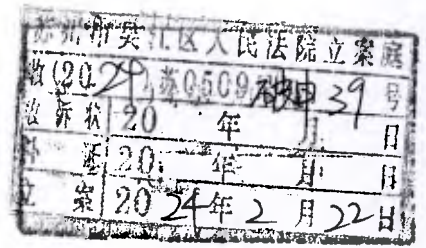 苏州市吴江区人民法院立案庭
收(2024)苏0509破申39号
收诉状 20 年 月 日
20 年 月 日
立案 2024年2月22日